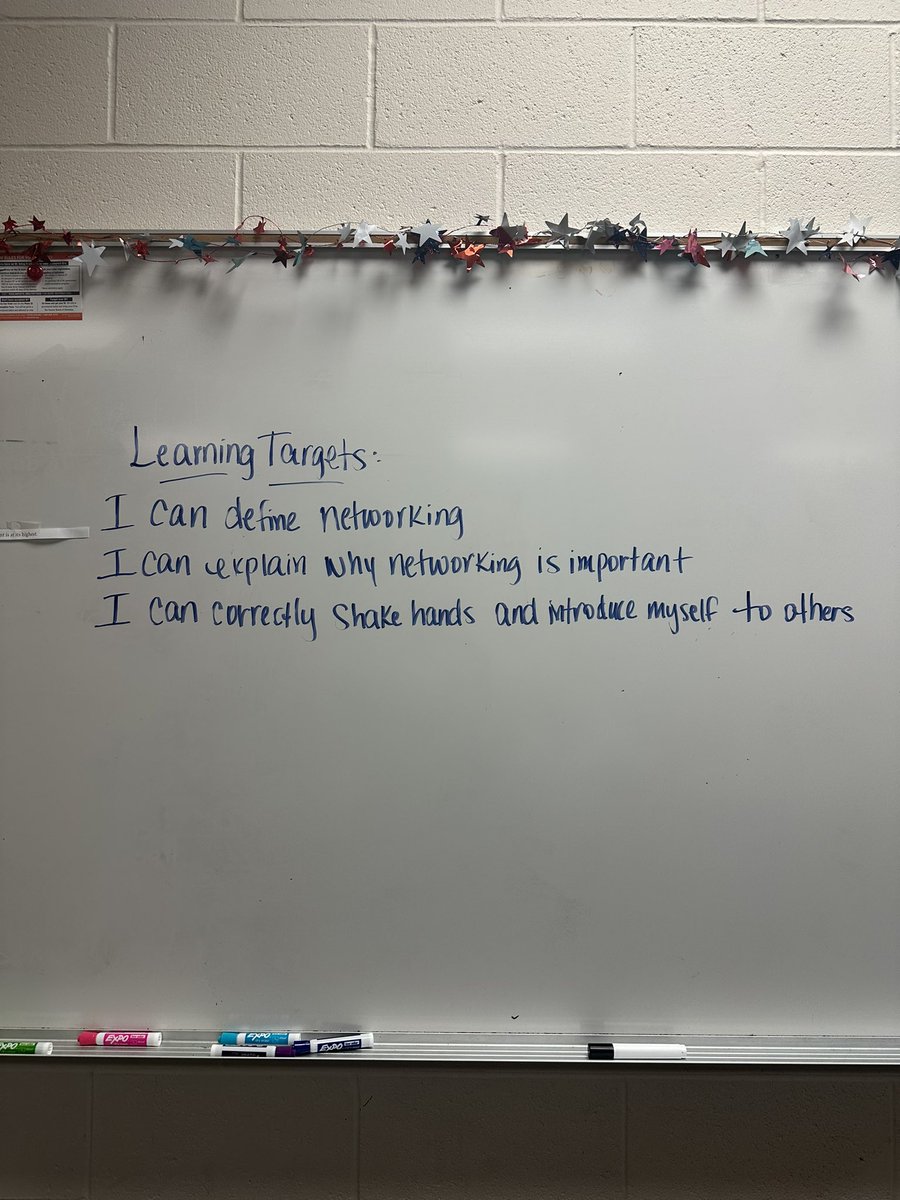 Learning Targets:
I can define networking
nt is at its highest.
I can explain why networking is important
I can correctly shake hands and introduce myself to others
EXPO
EXPO
EXPO
EXPO